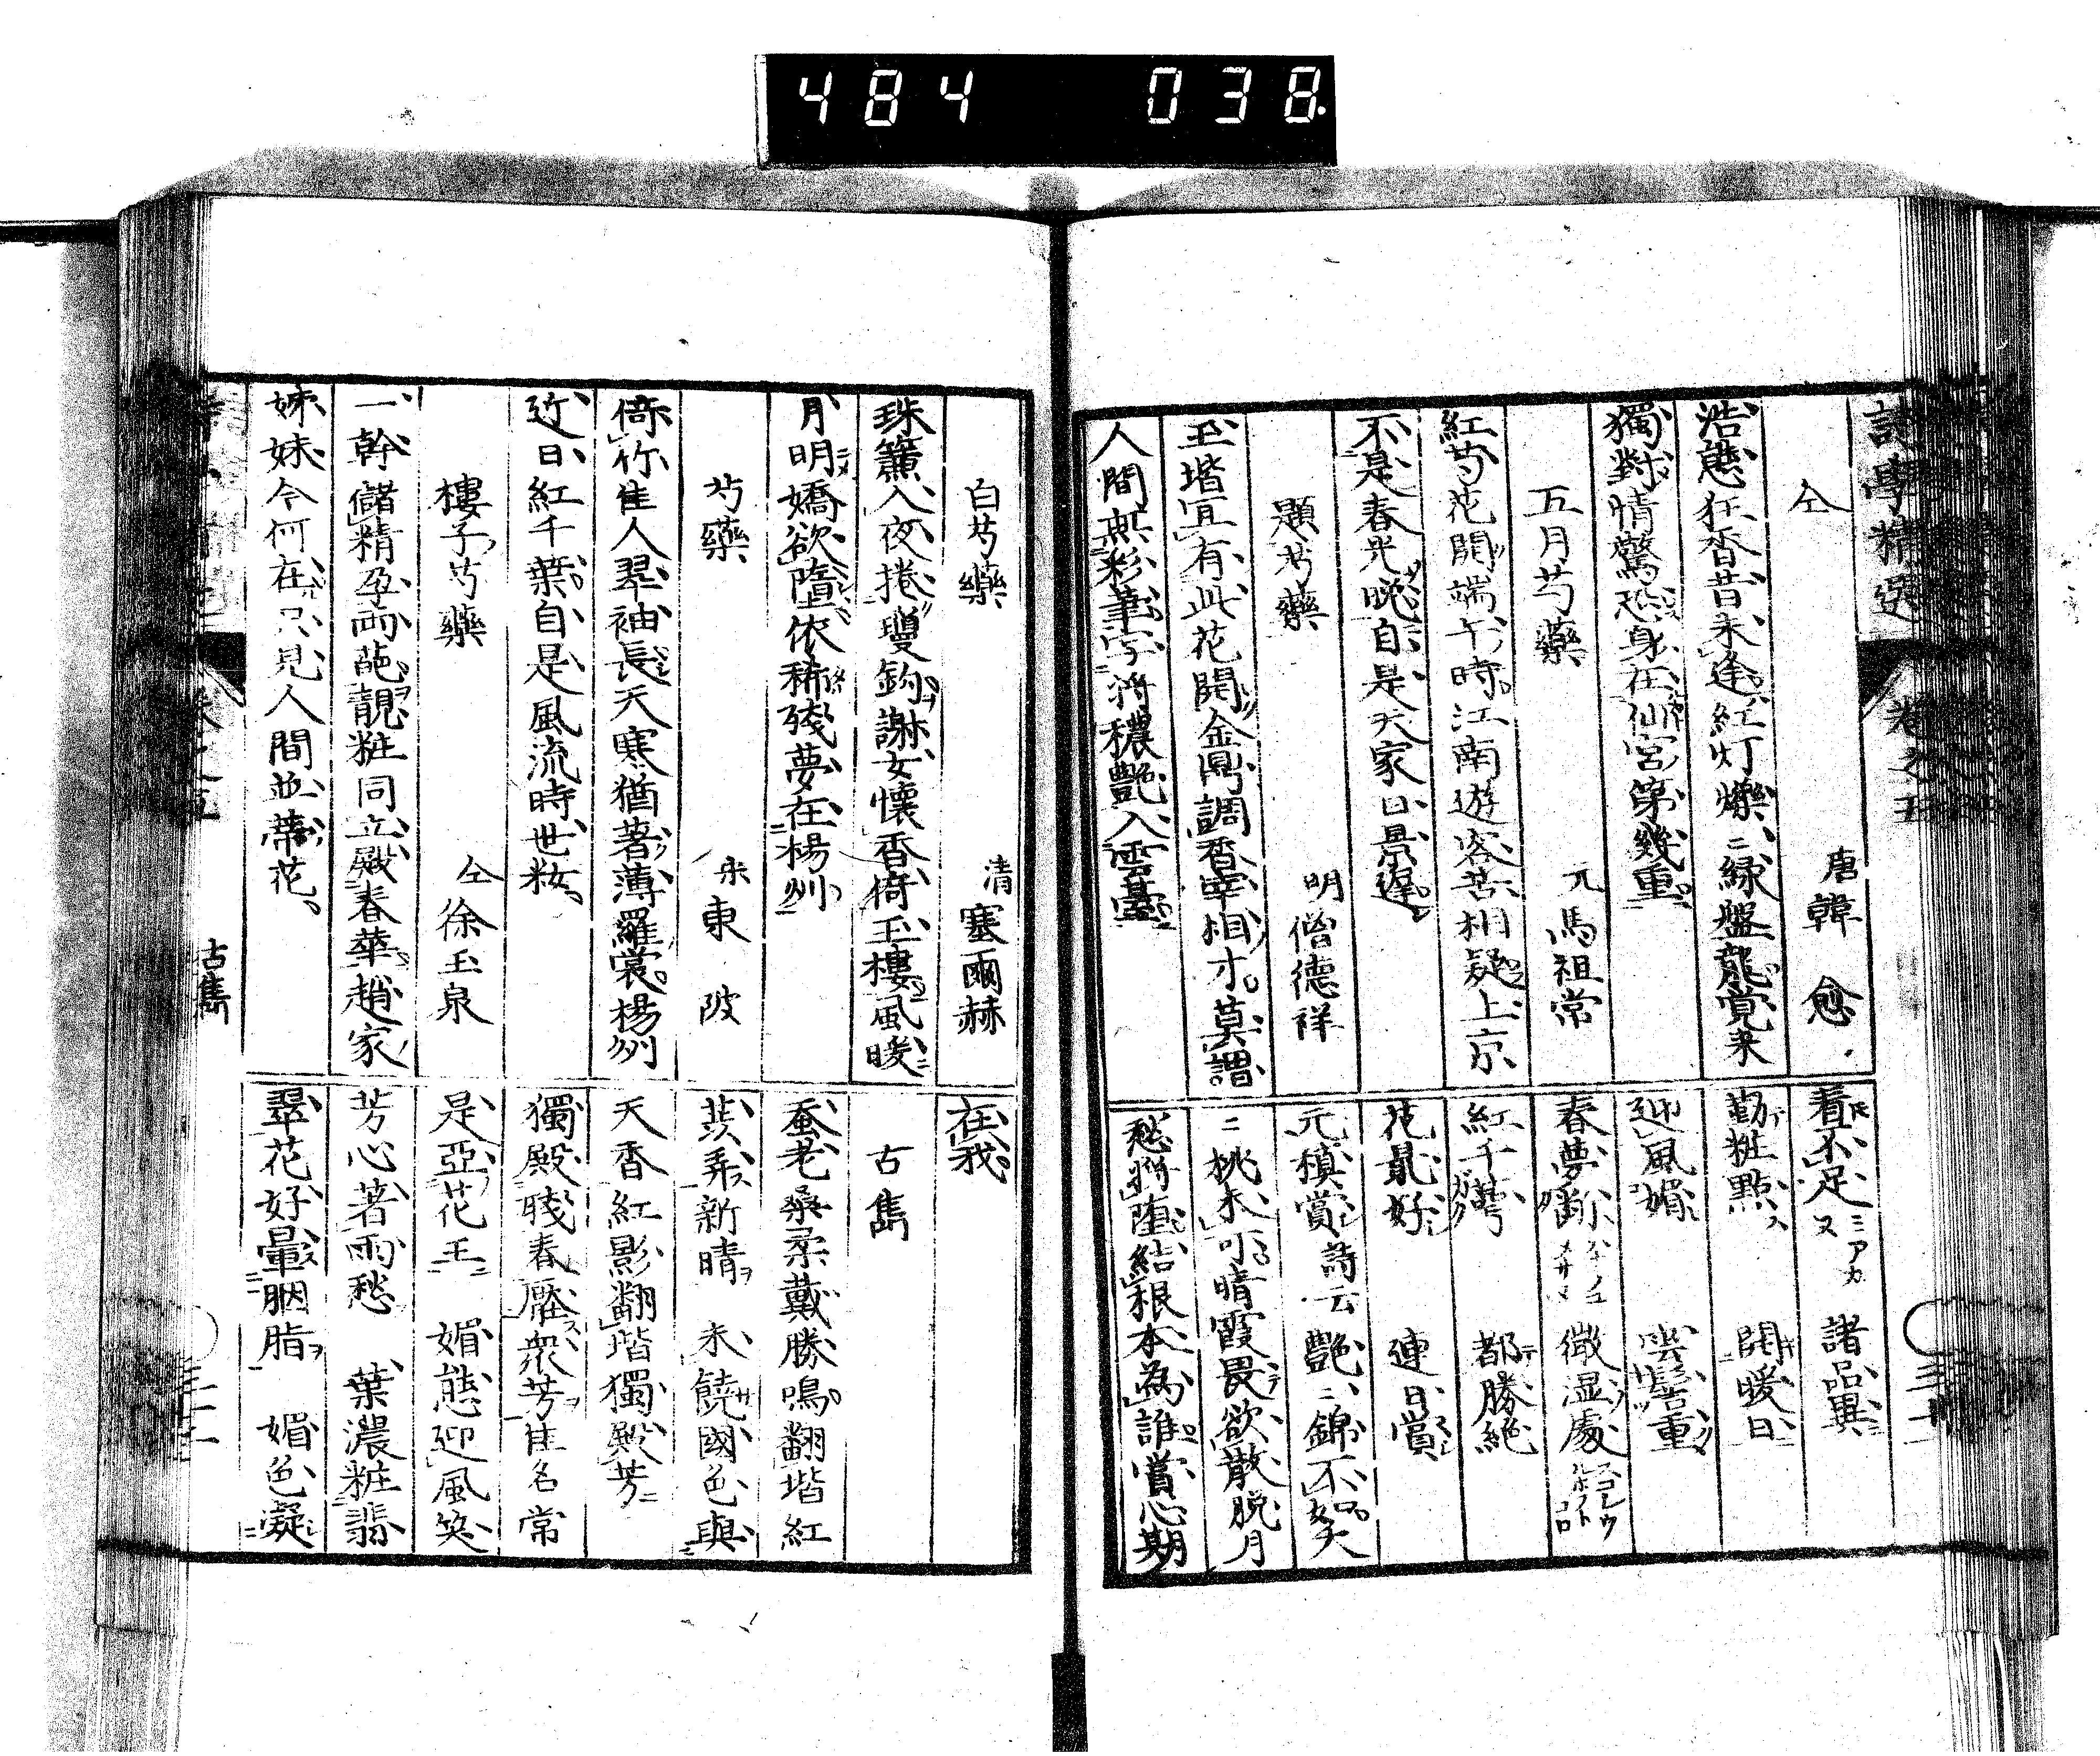 484 038
詩學精選 卷之五
仝 唐韓愈
浩態狂香昔未逢紅灯爍〻緑盤龍覚来
獨對情驚恐身在仙宮第幾重
五月芍藥 元馬祖常
紅芍花開端午時江南遊客苦相疑上京
不是春光晩自是天家日景遲
題芍藥 明僧德祥
玉堦宜有此花開金鼎調香宰相才莫謂
人間無彩筆字将穠艶入雲臺
看不足ミアカ又 諸品異
勤粧點ス 開暖日
迎風媚 雲髻重
春夢断 微湿處
紅千萼 都勝絶
花最好 連日賞
元稹賞詩云艶〻錦不如夭
〻桃未可晴霞畏欲散脱月
愁将堕結根本為誰賞心期
白芍藥 清塞爾赫
珠簾入夜捲瓊鈎謝女懐香倚玉樓風暖
月明嬌欲堕依稀残夢在楊州
芍藥 宋東坡
倚竹佳人翠袖長天寒猶著薄羅裳楊州
近日紅千葉自是風流時世粧
樓子芍藥 仝徐玉泉
一幹儲精孕両葩靚粧同立殿春華趙家
姊妹今何在只見人間並蒂花
在我
古雋
蚕老桑柔戴勝鳴翻堦紅
蕻弄新晴 未饒國色與
天香紅影翻堦獨殿芳
獨殿殘春壓衆芳佳名常
是亞花王 媚態迎風笑
芳心著雨愁 葉濃粧翡
翠花好暈胭脂 媚色凝
古雋